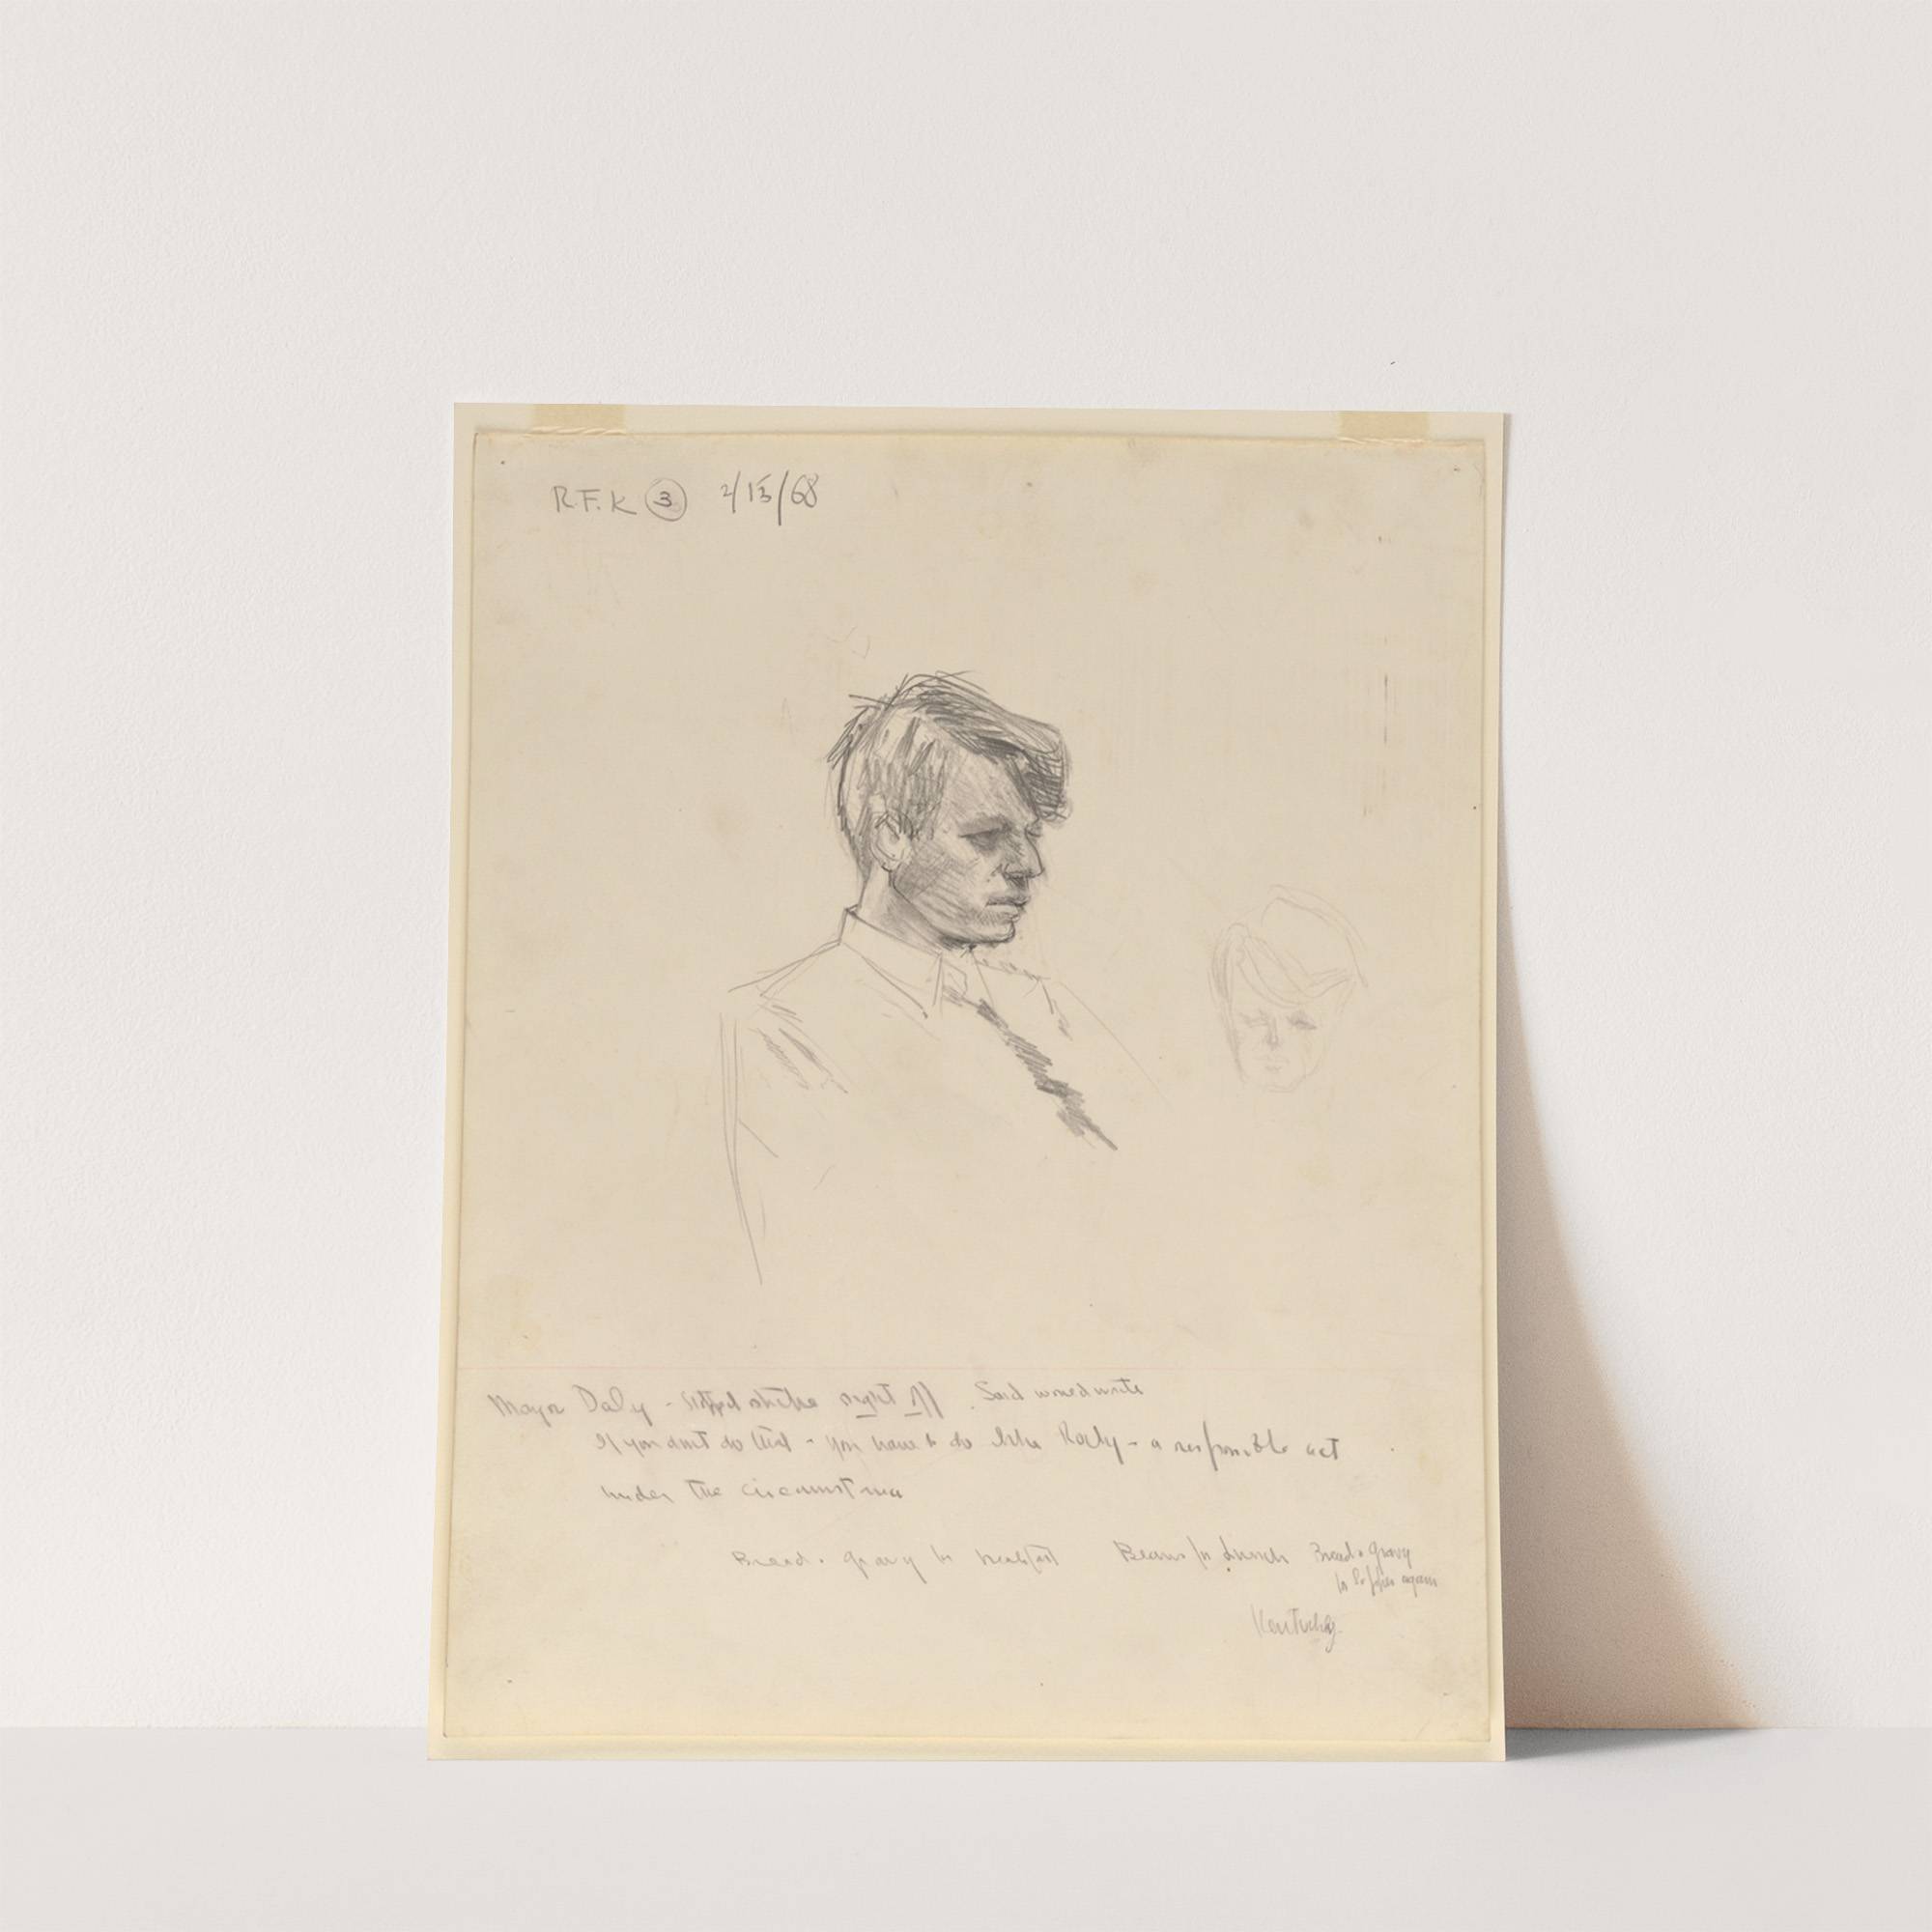 R.F.K ③ 2/15/68
Mayor Daly - stopped strike right off. Said
If you don't do that - you have to do like Rocky - a responsible act
under the circumstances
Bread + gravy for breakfast Beans for Lunch Bread + gravy
for again
Kentucky